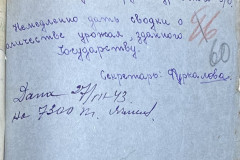 Немедленно дать сводки о
количестве урожая, зданного
Государству.
86
60
Секретарь: Фуркалова.
Дана 27/VIII-43
на 7300